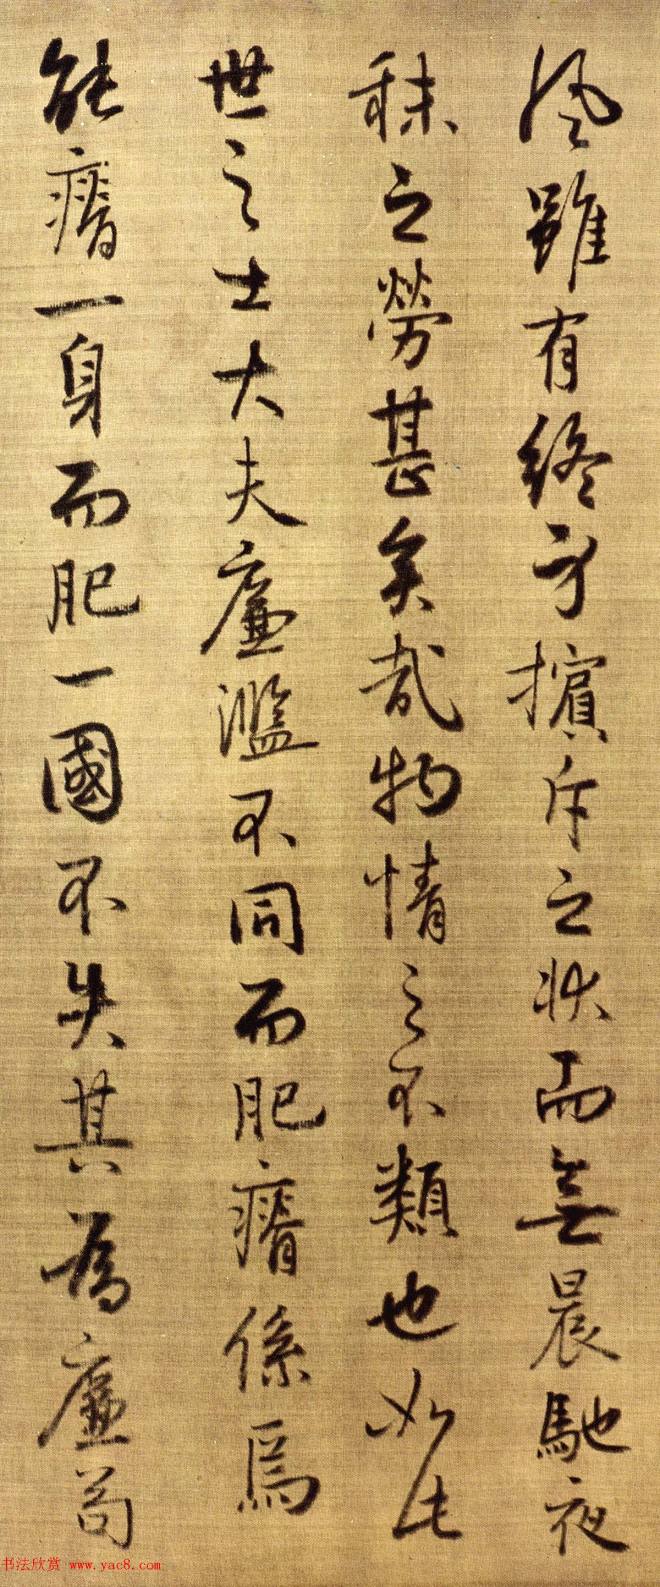 風雖有終身擯斥之狀而無晨馳夜
秣之勞甚矣哉物情之不類也如此
世之士大夫廉濫不同而肥瘠係焉
能瘠一身而肥一國不失其為廉苟
书法欣赏 www.yac8.com